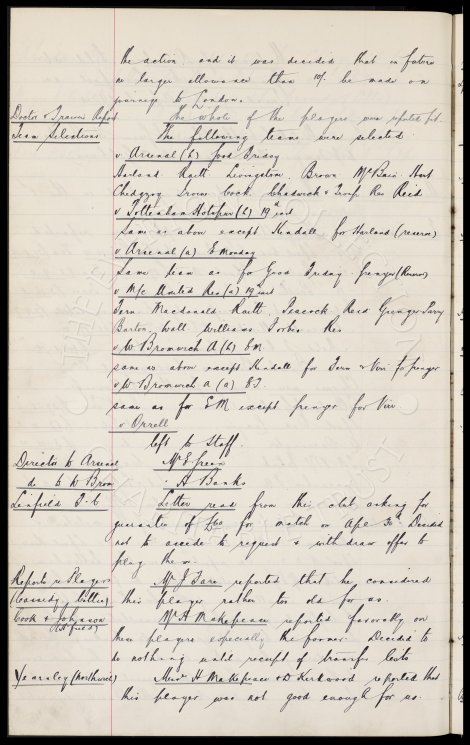 the action and it was decided that in future
no larger allowance than 10/- be made on
journeys to London.
Doctor & Trainers Report The whole of the players were reported fit.
Team Selections The following teams were selected
v Arsenal (h) Good Friday
Harland Raitt Livingstone Brown McBain Hart
Chedgzoy Irvine Cock Chadwick & Troup Res Reid
v Tottenham Hotspur (h) 19th inst
Same as above except Kendall for Harland (reserve)
v Arsenal (a) E Monday
Same team as for Good Friday (Reserve)
v M/c United Res (a) 19th inst
Fern Macdonald Raitt Peacock Reid Grenyer Parry
Barton Wall Williams Forbes Res
v W Bromwich A (h) EM
same as above except Kendall for Fern & Virr for Grenyer
v W Bromwich A (a) ET
same as for EM except Grenyer for Virr
v Orrell
left to Staff.
Director to Arsenal Mr E Green
do to W Brom " A Banks
Linfield F.C Letter read from this club asking for
guarantee of £60 for match on Apl 30. Decided
not to accede to request & withdraw offer to
play them.
Reports re Players Mr J Fare reported that he considered
(Cassidy, Celtic) this player rather too old for us.
Cook & Johnson Mr H Makepeace reported favorably on
these players especially the former. Decided to
do nothing until receipt of transfer lists
Yearsley (Northwich) Messrs H Makepeace & D Kirkwood reported that
this player was not good enough for us.